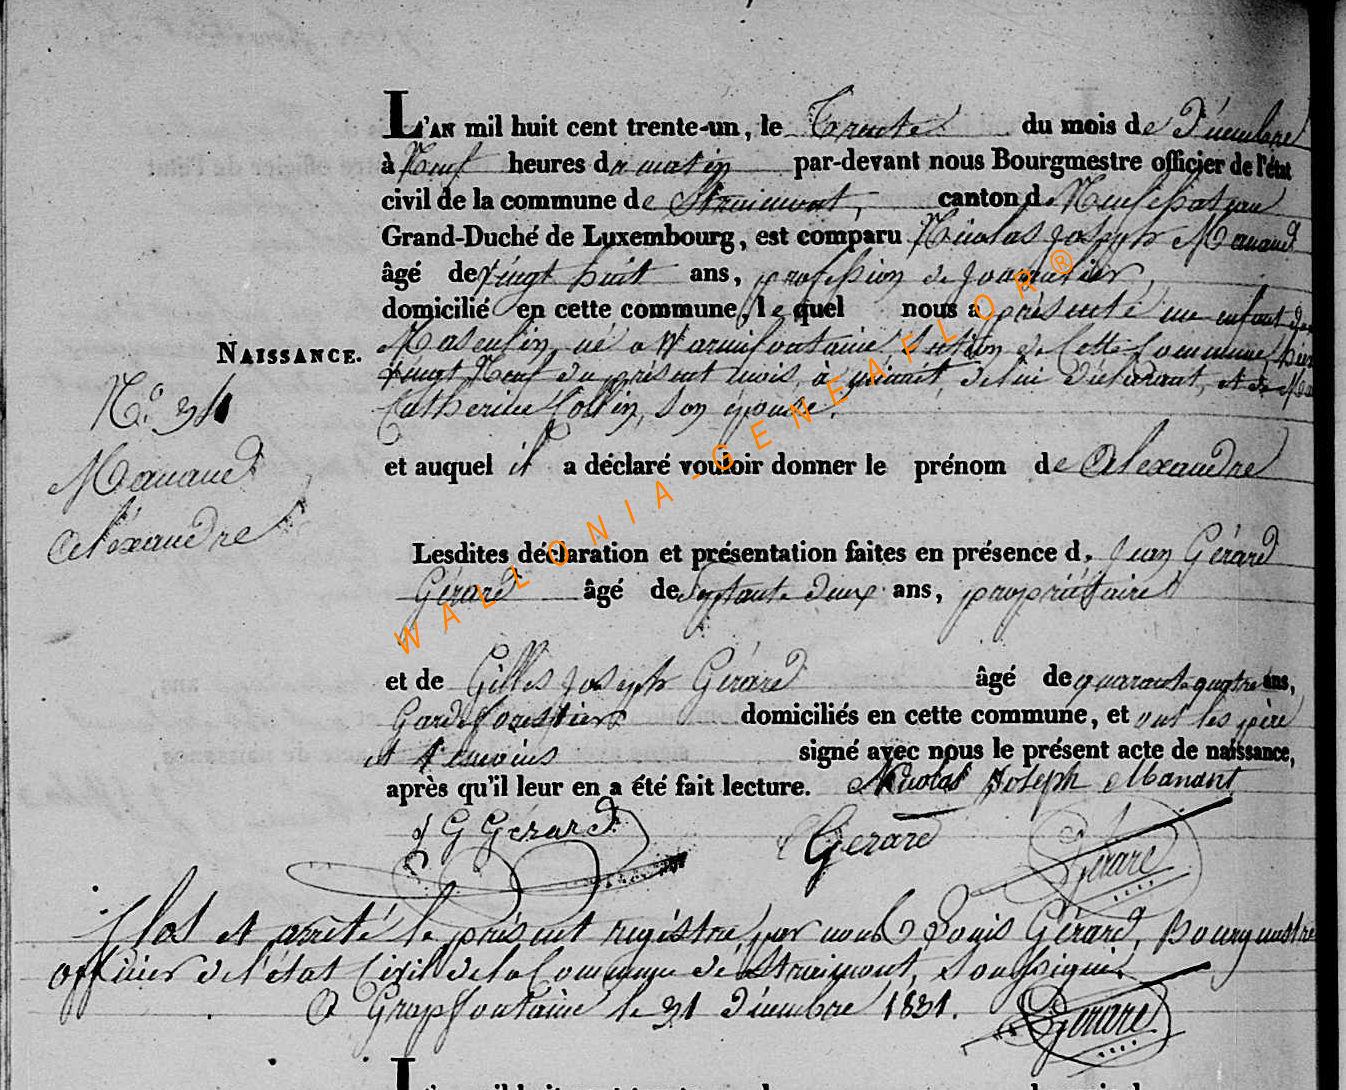 L'AN mil huit cent trente-un, le Trente du mois de Décembre
à Neuf heures du matin par-devant nous Bourgmestre officier de l'état
civil de la commune de Straimont, canton de Neufchateau
Grand-Duché de Luxembourg, est comparu Nicolas Joseph Manand
âgé de vingt huit ans, profession de Journalier,
domicilié en cette commune, lequel nous a présenté un enfant du
NAISSANCE.
Masculin, né a Warmifontaine, Section de Cette Commune, hier
vingt Neuf du présent mois, à minuit, de lui déclarant, et de
Catherine Collin, son épouse.
N.° 34
Manand
Aléxandre
et auquel il a déclaré vouloir donner le prénom de Alexandre
Lesdites déclaration et présentation faites en présence d. Jean Gérard
Gérard âgé de Septante deux ans, propriétaire
et de Gilles Joseph Gérard âgé de quarante quatre ans,
Garde forestier domiciliés en cette commune, et ont les père
et témoins signé avec nous le présent acte de naissance,
après qu'il leur en a été fait lecture. Nicolas Joseph Manant
J G Gérard Gerard Gérard
Clos et arrêté le présent registre, par nous Louis Gérard, Bourgmestre
officier de l'état Civil de la Commune de Straimont, Soussigné.
A Grapfontaine le 31 Décembre 1831. Gérard
WALLONIA-GENEAFLOR®